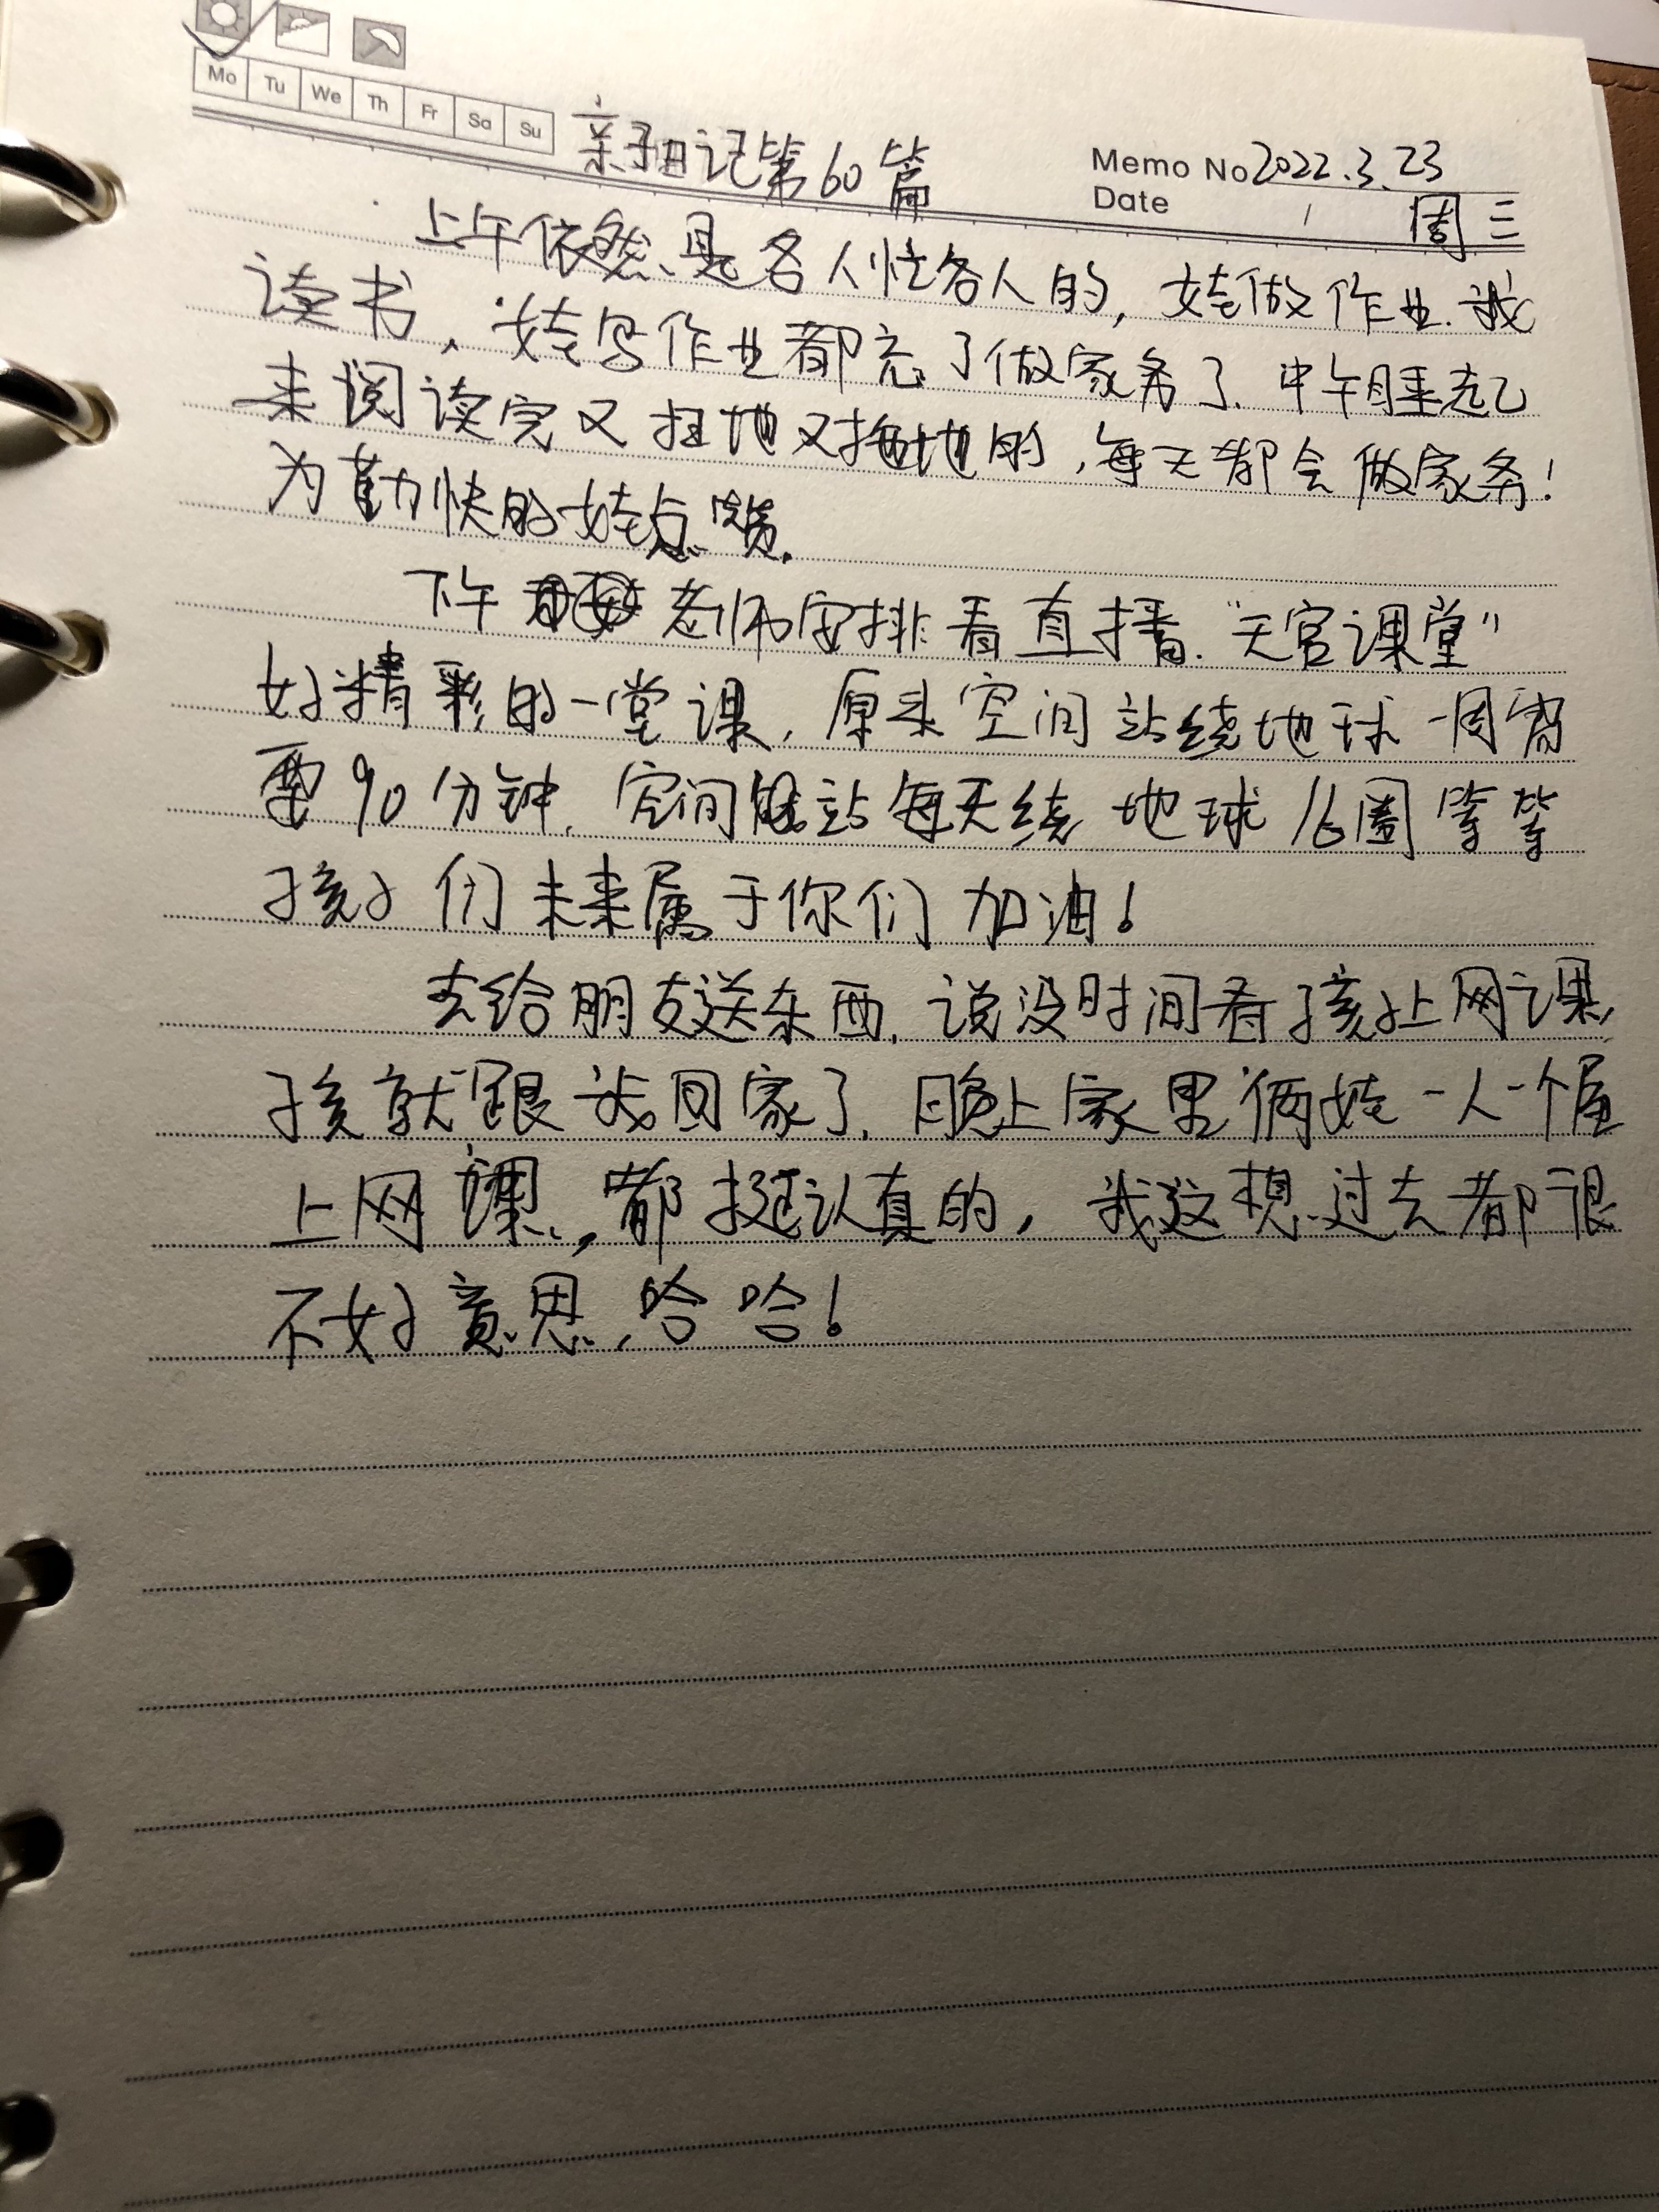 Mo Tu We Th Fr Sa Su
亲子日记第60篇
Memo No 2022.3.23
Date / 周三
上午依然是各人忙各人的，娃做作业.我
读书，娃写作业都忘了做家务了.中午睡起
来阅读完又扫地又拖地的，每天都会做家务！
为勤快的娃点赞.
下午 老师安排看直播.“天宫课堂”
好精彩的一堂课，原来空间站绕地球一周需
要90分钟.空间站每天绕地球16圈等等
孩子们未来属于你们加油！
去给朋友送东西，说没时间看孩上网课，
孩就跟我回家了.晚上家里俩娃一人一个屋
上网课，都挺认真的，我这想过去都很
不好意思，哈哈！